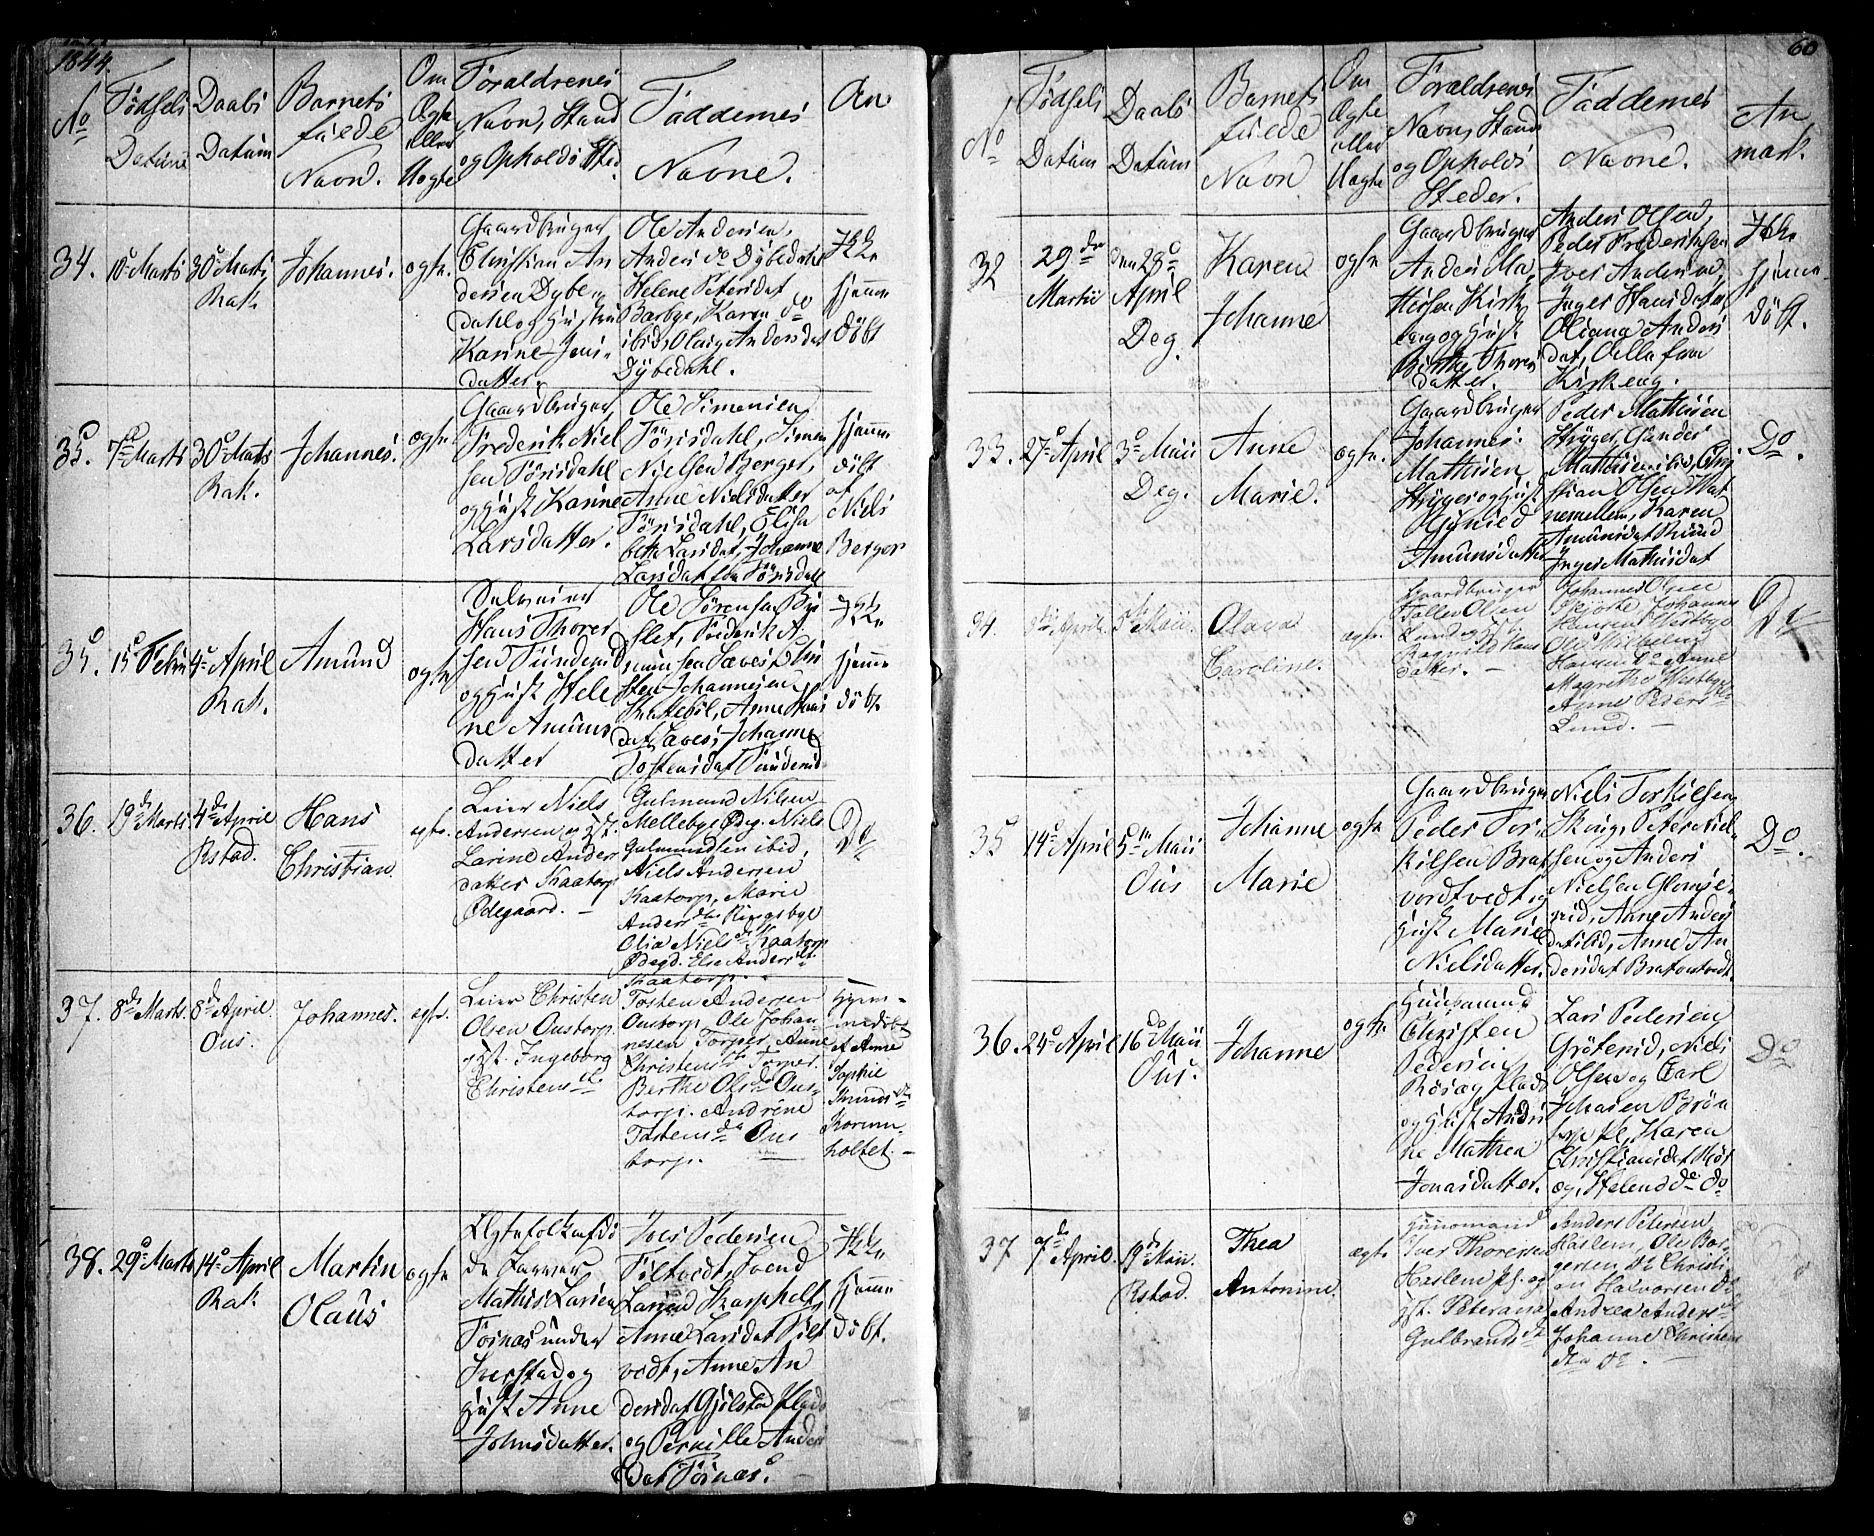 1844.
No
Födsels
Datum
Daabs
Datum
Barnets
fulde
Navn.
Om
Ægte
eller
Uægte
Foraldrenes
Navn, Stand
og Opholds Sted.
Faddernes
Navne.
An
34.
10de Marts
30de Marts
Rak.
Johannes.
ægte.
Gaardbruger
Christian An
dersen Dybe
dahl og Hustru
Karine Jens
datter.
Ole Andersen,
Anders do Dybedahl
Helene Petersdat
Barbye, Karen do
ibid, Olava Andersdat
Dybedahl.
Ikke
hjemme
döbt
35.
7de Marts
30de Marts
Rak.
Johannes.
ægte
Gaardbruger
Frederik Niel
sen Törisdahl
og Hust Karine
Larsdatter.
Ole Simensen
Törisdahl, Simen
Nielsen Berger,
Anne Nielsdatter
Törisdahl, Elisa
beth Larsdat, Johanne
Larsdat fra Törisdahl
hjemme
döbt
af
Niels
Berger
35.
15de Febr
4de April
Rak.
Amund
ægte
Hans Thores
sen
og Hust Hele
ne Amunds
datter
Ole Sörensen
Frederik A
mundsen
Johannesen
Anne Hans
dat Johanne
Tostensdat
Ikke
hjemme
döbt
36.
19de Marts.
4de April
Rstad.
Hans
Christian
ægte.
Leier Niels
Andersen og Hst.
Larine Anders
datter Kaatorp
Ødegaard.
Gulmund Nilsen
Melleby Ødg. Niels
Gulmundsen ibid,
Niels Andersen
Kaatorp, Marie
Andersdtr Ringsbye
Olia Nielsdtr Kaatorp
Ødegd. Else Andersdt.
Kaatorp.
Do
37.
8de Marts.
8de April
Ous.
Johannes.
ægte.
Leier Christen
Olsen Oustorp
Hst. Ingeborg
Christensdtr
Tosten Andersen
Oustorp, Ole Johan-
nesen Torper, Anne
Christensdtr Torper.
Berthe Olsdtr Ous-
torp. Andrine
Tostensdtr Ous
torp.
Hjem-
medöbt
af Anne
Sophie
Knudsdtr
Korum-
holtet.
38.
29de Marts
14de April
Rak.
Martin
Olaus
ægte
Ægtefolk
Mathis Larsen
Törnæs under
Iverstad og
Hust Anne
Johnsdatter.
Iver Pedersen
Tiltvedt, Svend
Larsen Karpholt,
Anne Larsdat Tilt
vedt, Anne An
dersdat Gjölstad Plads
og Pernille Anders
dat Törnæs.
Ikke
hjemme
döbt.
60
No
Födsels
Datum
Daabs
Datum
Barnets
fulde
Navn
Om
Ægte
eller
Uægte
Forældrenes
Navn, Stand
og Opholds
Steder.
Faddernes
Navne.
An
mærk.
32
29de
Martii
den 28de
April
Deg.
Karen
Johanne
ægte
Gaardbruger
Anders Ma
thisen Kirk
eng og Hust.
Birthe Thores
datter.
Anders Olsen,
Peder Frederiksen
Iver Andersen,
Inger Hansdatter
Oliana Anders
dat, Alle fra
Kirkeng.
Ikke
hjemme
döbt.
33.
27de April
3de Maii
Deg.
Anne
Marie.
ægte.
Gaardbruger
Johannes
Mathisen
Strÿger og Hust
Gunild
Amundsdatter
Peder Mathisen
Strÿger, Gunder
Mathisen ibid, Chri
stian Olsen
nemellem, Karen
Amundsdat
Inger Mathisdat
Do.
34.
April.
5te Maii.
Olava
Caroline.
ægte.
Gaardbruger
Tollev Olsen
Lund og Hst.
Ragnild Hans
datter.
Johannes Olsen
Johannes
Hansen Westbye
Ole Wilhelm
Hansen do Anne
Magrethe Westbye
Anne Pedersdtr
Lund.
Do
35
14de April
5te Maii
Ous
Johanne
Marie
ægte
Gaardbruger
Peder Tor
kilsen Brat
vordtvedt og
Hust Marie
Nielsdatter.
Niels Torkilsen
Skoug, Peter Niel
sen og Anders
Nielsen Glomse
rud, Anne Anders
dat ibid, Anne An
dersdat Bratvordtvedt
Do.
36.
24de April
16de Maii
Ous.
Johanne
ægte
Huusmand
Christen
Pedersen
Rösæg Plads
og Hust Andri
ne Mathea
Jonasdatter.
Lars Pedersen
Gröterud, Niels
Olsen og Carl
Johansen
Karen
Christiansdat Rös
æg, Helene do do
Do
37
7de April.
19de Maii.
Rstad.
Thea
Antonine.
ægte
Huusmand
Iver Thoresen
Haslem pl. og
Hst. Peterana
Gulbrandsdt
Anders Petersen
Haslem, Ole Bor
gersen do Christi
an Halvorsen do
Andrea Andersdtr
Johanne Christens
dtr do.